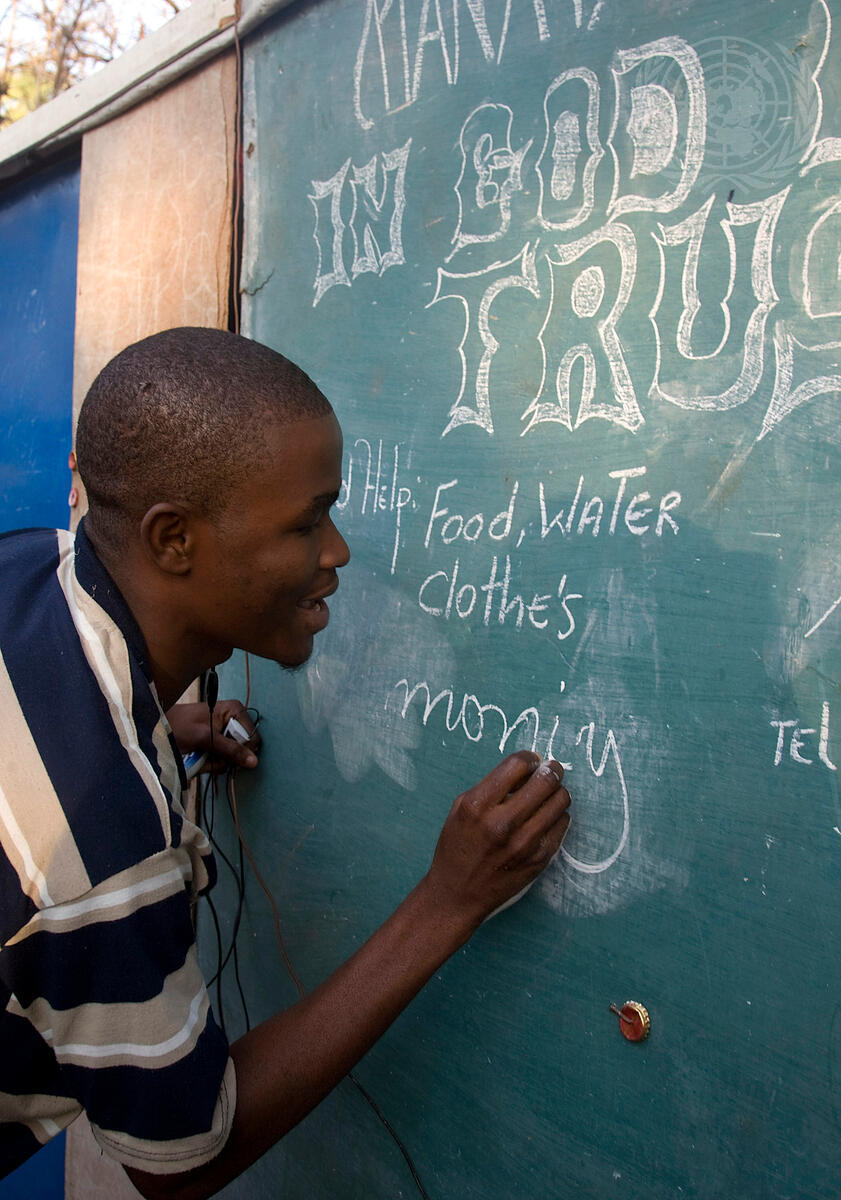 IN GOD
TRUS
d Help: Food, WATER
Clothe's
moniy
TEL